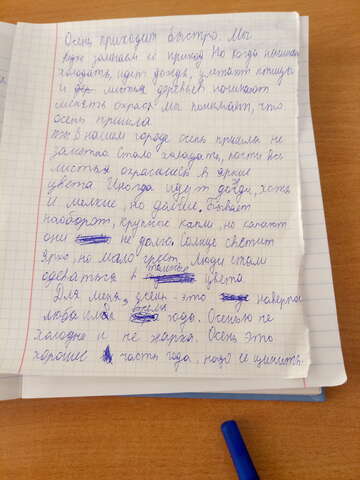 Осень приходит быстро. Мы
замечаем её приход. Но когда начинает
холодать, идет дождь, улетают птицы
и листья деревьев начинают
менять окрас мы понимаем, что
осень пришла.
В нашем городе осень пришла не
заметно. Стало холодать, почти все
листья окрасились в яркие
цвета. Иногда идут дожди, хоть
и мелкие, но долгие. Бывает
наоборот, крупные капли, но капают
они не долго. Солнце светит
ярко, но мало греет. Люди стали
одеваться в тёмные цвета.
Для меня, осень - это наверно
любимое время года. Осенью не
холодно и не жарко. Осень это
хорошее часть года, надо её ценить.